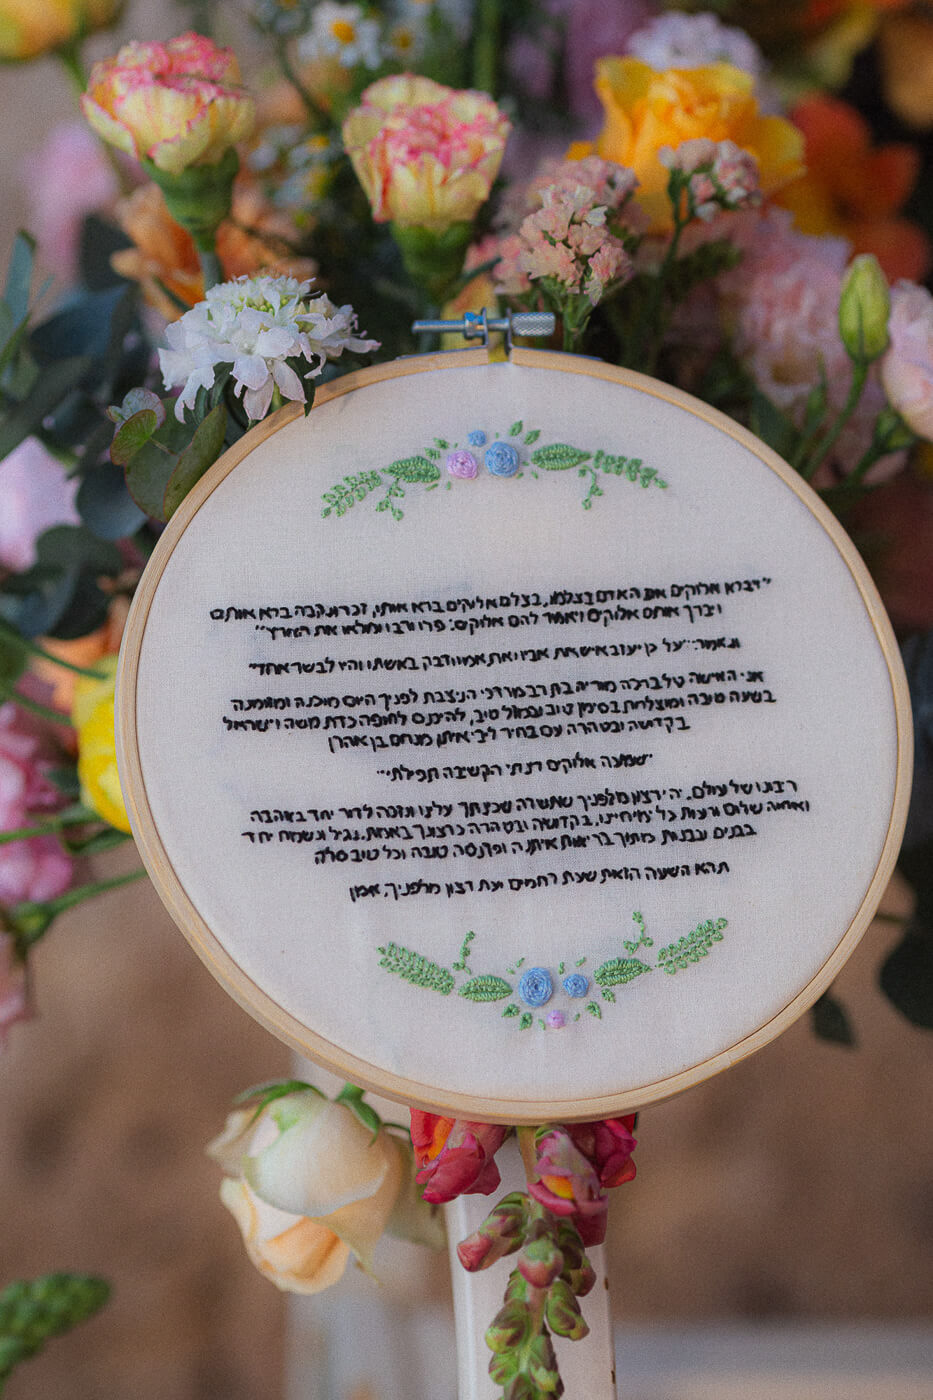 "ויברא אלוקים את האדם בצלמו, בצלם אלוקים ברא אותו, זכר ונקבה ברא אותם
ויברך אותם אלוקים ויאמר להם אלוקים: פרו ורבו ומלאו את הארץ"
ונאמר: "על כן יעזוב איש את אביו ואת אמו ודבק באשתו והיו לבשר אחד"
אני האישה טל ברכה מוריה בת רב מרדכי הניצבת לפניך היום מוכנה ומזומנה
בשעה טובה ומוצלחת בסימן טוב ובמזל טוב, להיכנס לחופה כדת משה וישראל
בקדושה ובטהרה עם בחיר ליבי איתן מנחם בן אהרן
"שמעה אלוקים רנתי הקשיבה תפילתי"
ריבונו של עולם, יהי רצון מלפניך שתשרה שכינתך עלינו ונזכה לדור יחד באהבה
ואחוה שלום ורעות כל ימי חיינו, בקדושה ובטהרה כרצונך באמת. נגיל ונשמח יחד
בבנים ובבנות מתוך בריאות איתנה ופרנסה טובה וכל טוב סלה
תהא השעה הזאת שעת רחמים ועת רצון מלפניך, אמן